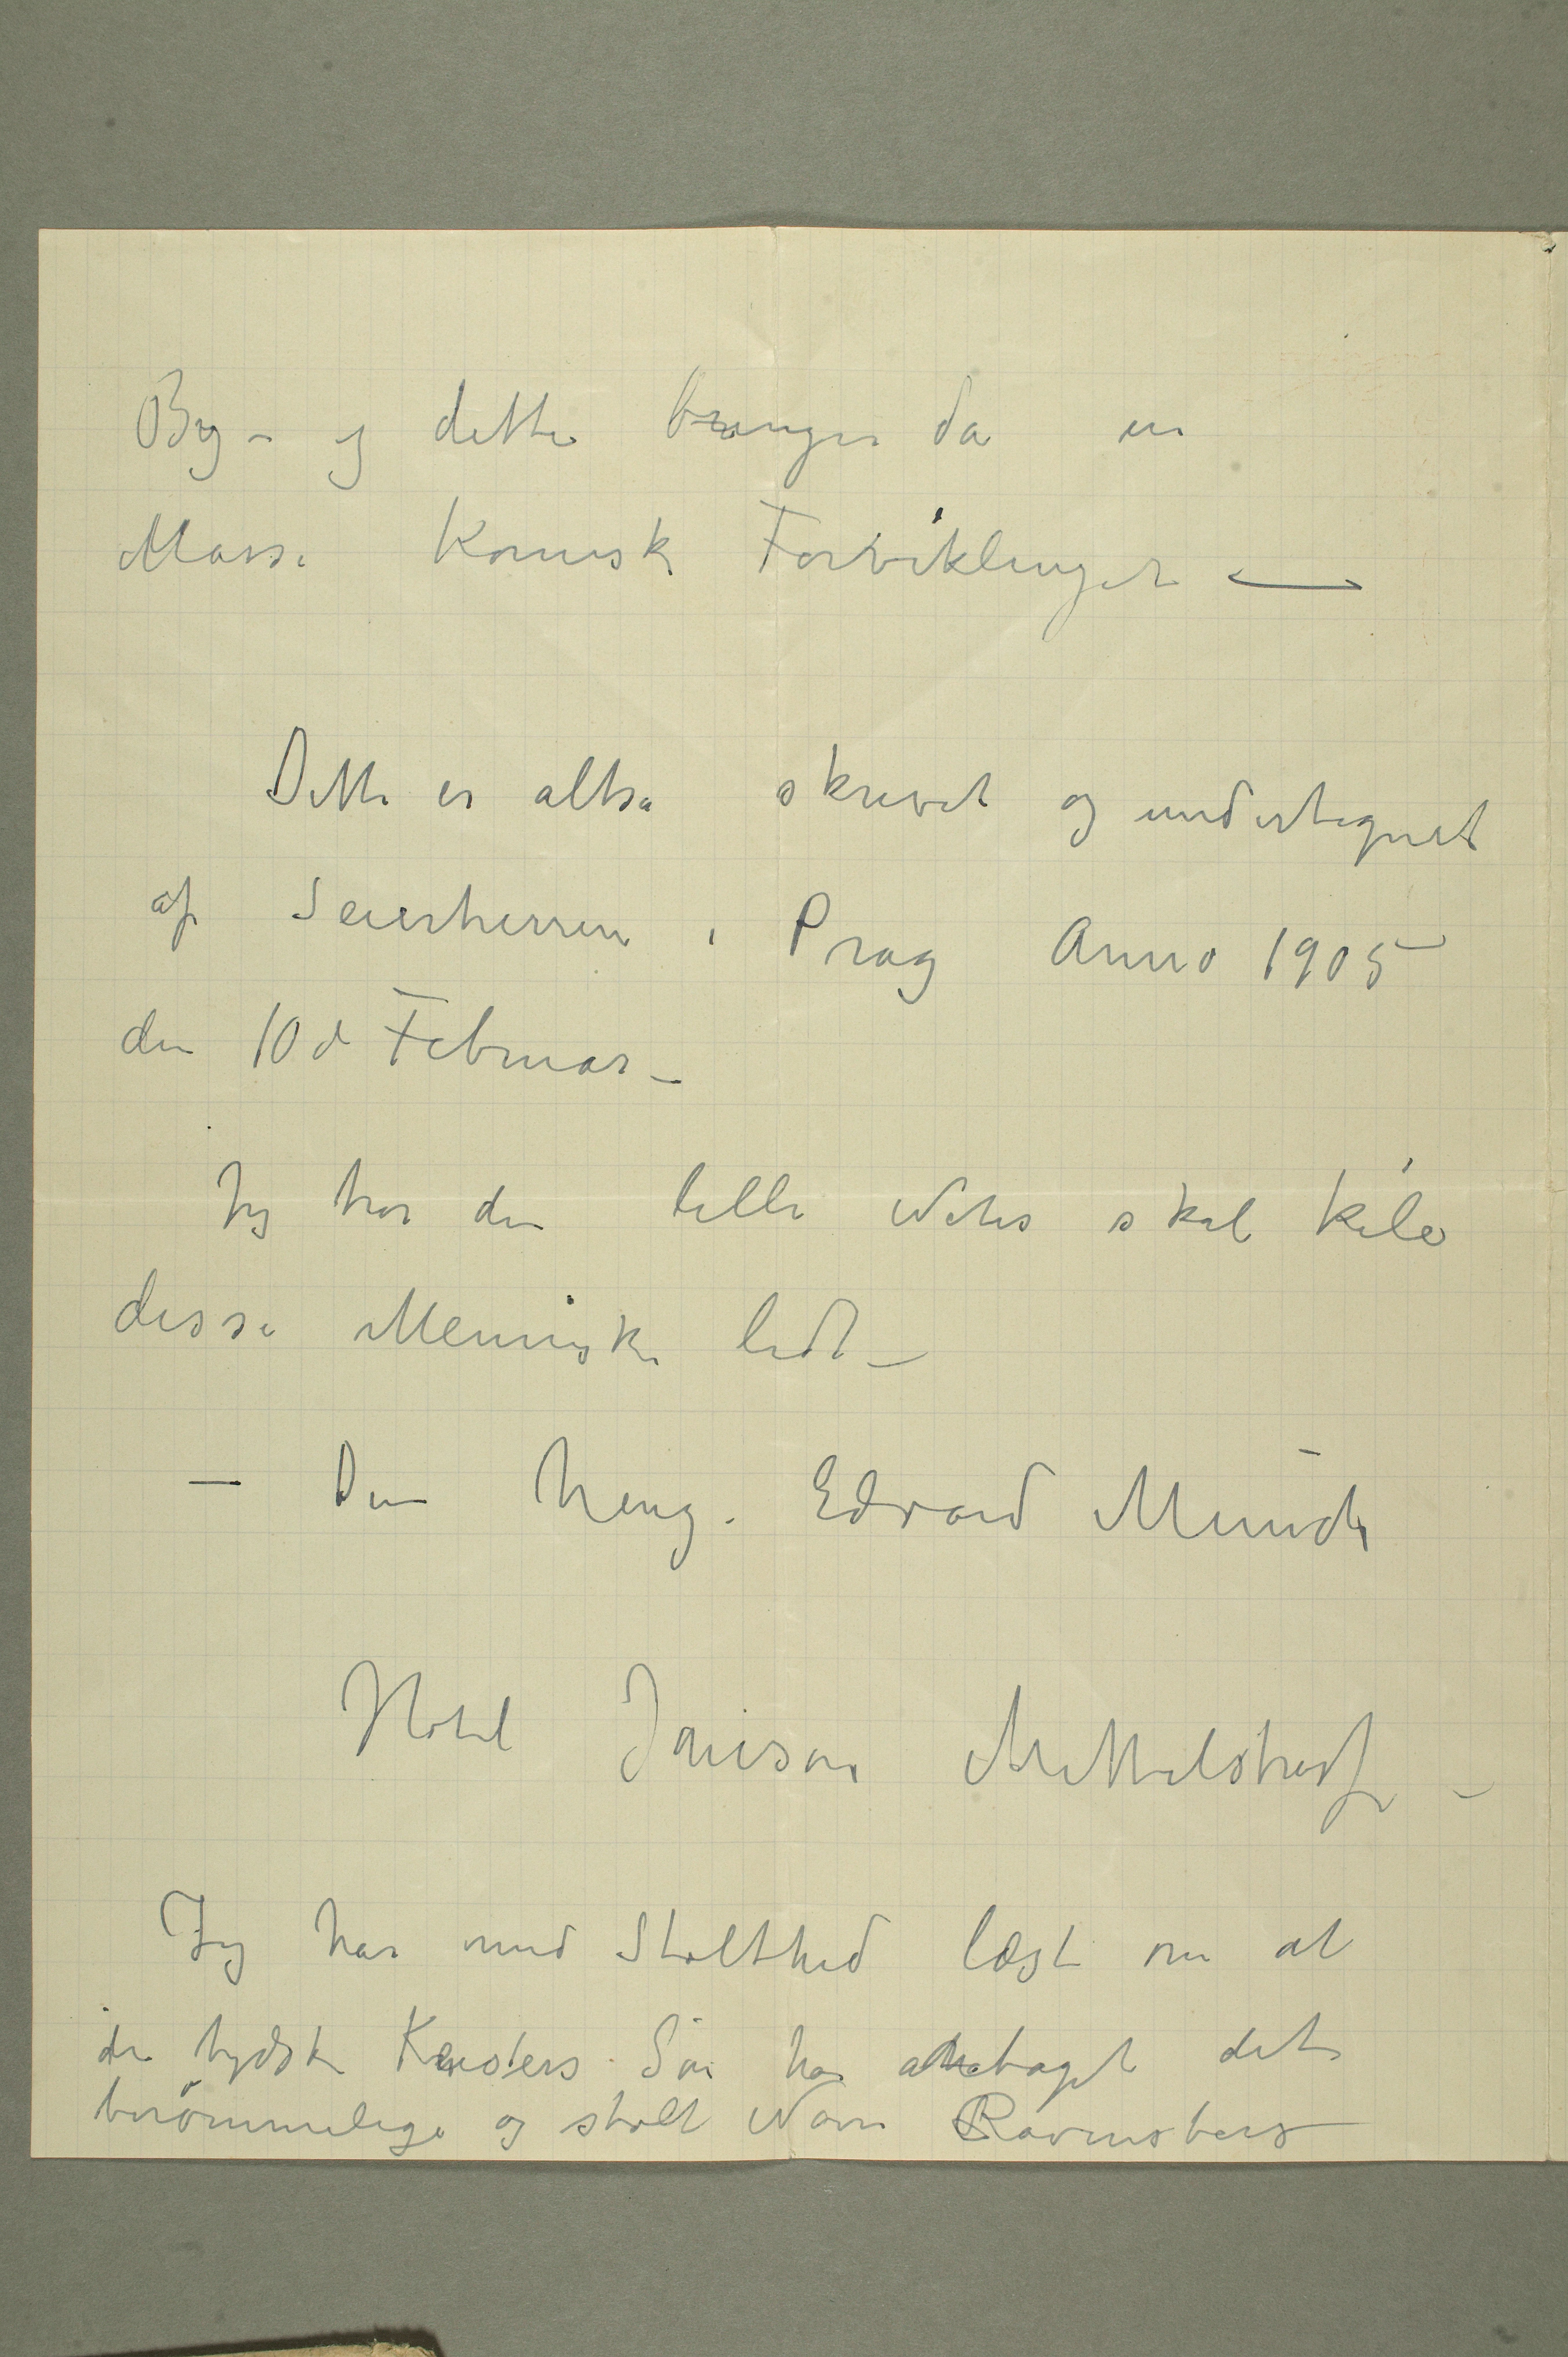 By – og dette bringer da en
Masse Komiske Forviklinger —
Dette er altså skrevet og undertegnet
af Seierherren i Prag Anno 1905
den 10d Februar –
Jeg tror den lille Notis skal kile
disse Menneske lidt –
– Din heng. Edvard Munch
Hotel Janson Mittelstrasse –
Jeg har med Stolthed læst om at
den tydske Keisers Sön har antaget det
berömmelige og stolte Navn Ravensberg